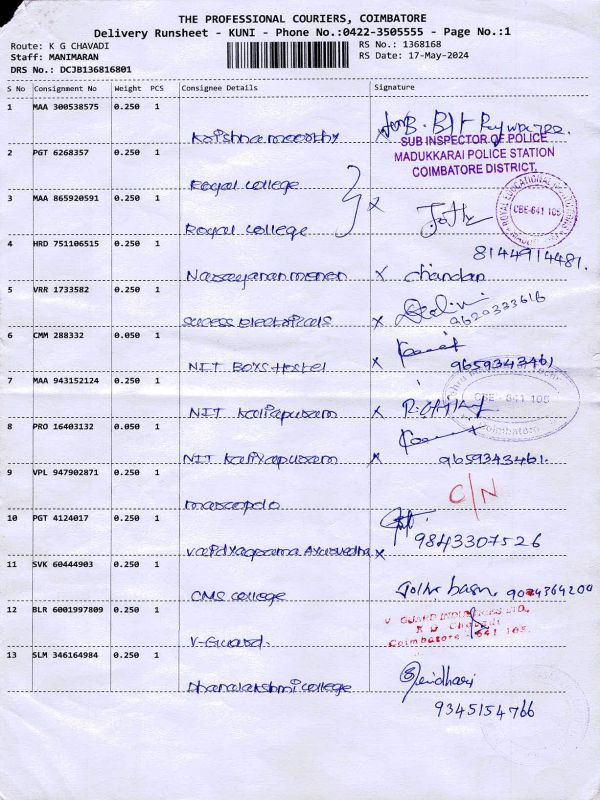 THE PROFESSIONAL COURIERS, COIMBATORE
Delivery Runsheet - KUNI - Phone No.:0422-3505555 - Page No.:1
Route: K G CHAVADI
RS No.: 1368168
Staff: MANIMARAN
RS Date: 17-May-2024
DRS No.: DCJB136816801
S No Consignment No Weight PCS Consignee Details Signature
1 MAA 300538575 0.250 1
Krishnamoorthy
SUB INSPECTOR OF POLICE
MADUKKARAI POLICE STATION
COIMBATORE DISTRICT.
2 PGT 6268357 0.250 1
Royal college
3 MAA 865920591 0.250 1
Royal college x
CBE-641 105
4 HRD 751106515 0.250 1
8144914481.
Narayanan menon x chandan
5 VRR 1733582 0.250 1
sucess Electricals x
9629333616
6 CMM 288332 0.050 1
NIT BOYS Hostel x 9659343461
7 MAA 943152124 0.250 1
CBE - 641 105
Coimbatore
NIT Kaliapuram x
8 PRO 16403132 0.050 1
NIT Kaliyapuram x 9659343461.
9 VPL 947902871 0.250 1
C/N
marcopolo
10 PGT 4124017 0.250 1
9843307526
Vaidyagrama Ayurvedha x
11 SVK 60444903 0.250 1
CMS college
12 BLR 6001997809 0.250 1
V GUARD INDUSTRIES LTD.,
K G Chavadi
Coimbatore - 641 105.
V-Guard.
13 SLM 346164984 0.250 1
Dhanalakshmi college
9345154766